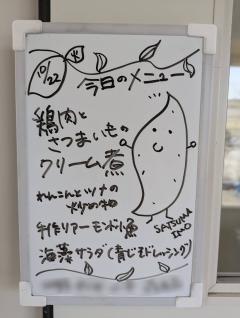 10/22 火
今日のメニュー
鶏肉と
さつまいもの
クリーム煮
れんこんとツナの
炒め物
手作りアーモンド小魚
海藻サラダ(青じそドレッシング)
SATSUMA
IMO